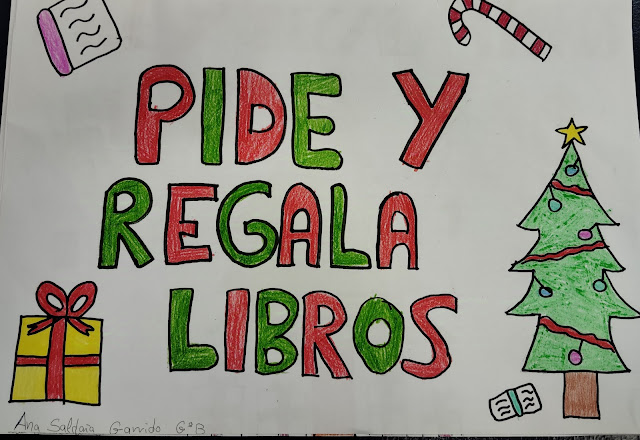 PIDE Y
REGALA
LIBROS
Ana Saldaña Garrido 6ºB